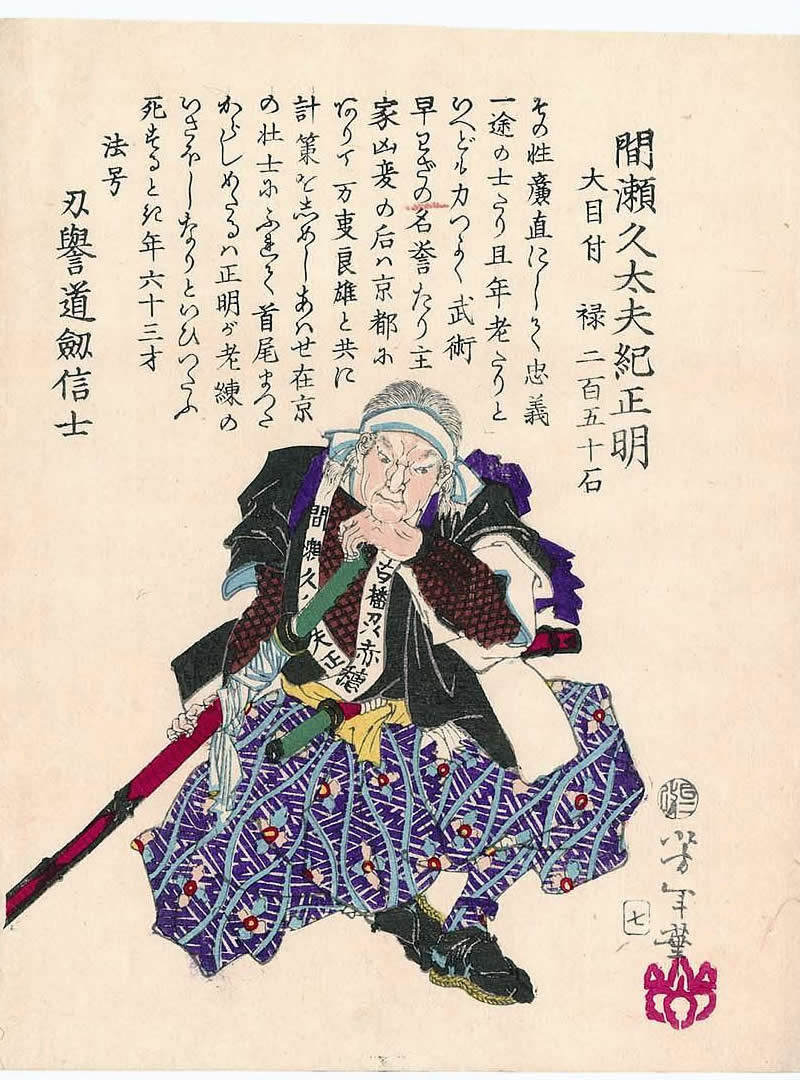 間瀬久太夫紀正明
大目付　禄　二百五十石
その性廣直にして忠義
一途の士たり且年老たりと
いへども力つよく武術
早わざの名誉たり主
家凶変の后ハ京都に
ありて万事良雄と共に
計策をしめしあはせ在京
の壮士にふれて首尾まつた
からしめたるハ正明が老練の
いさほしなりといひつたふ
死するとき年六十三才
法号
刃譽道劔信士
間瀬久
夫正
赤穂
芳年筆
七